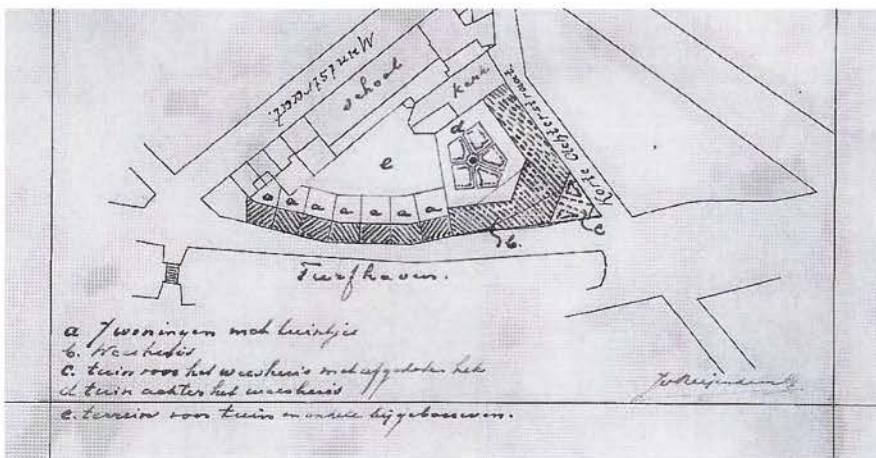 Muntstraat.
school
kerk
Korte Achterstraat.
d
e
a a a a a a a
b.
c
Turfhaven.
a 7 woningen met tuintjes
b. Weeshuis
c. tuin voor het weeshuis met afgesloten hek
d tuin achter het weeshuis
e. terrein voor tuin en enkele bijgebouwen.